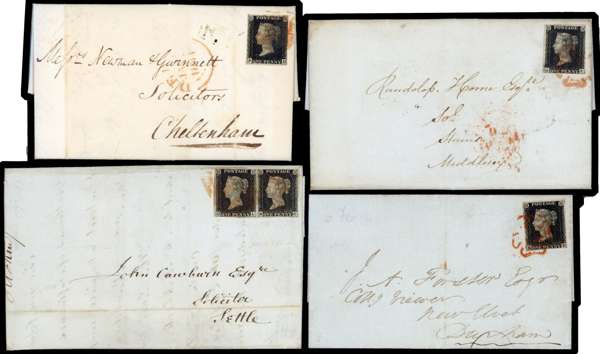 POSTAGE
ONE PENNY
Messrs Newman & Gwinnett
Solicitors
Cheltenham
POSTAGE
ONE PENNY
Randolph Horne Esqre
Sol
Middlesex
POSTAGE POSTAGE
ONE PENNY ONE PENNY
John Cawburn Esqre
Solicitor
Settle
POSTAGE
ONE PENNY
J. A. Forster Esqr
Viewer
New Elvet
Durham